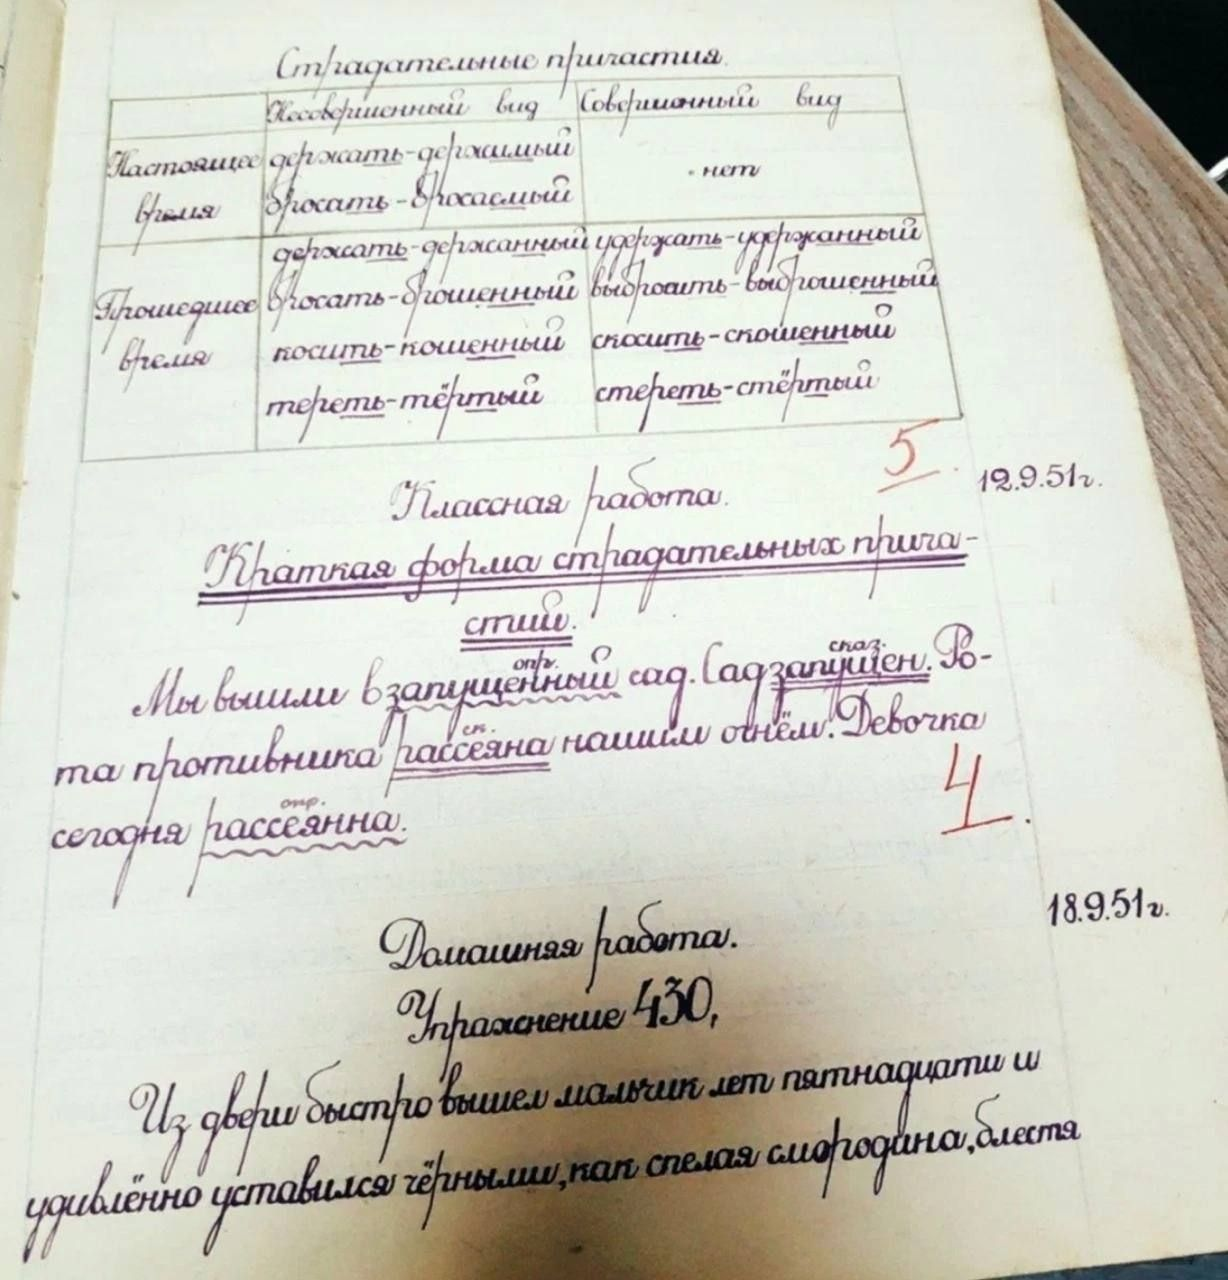 Страдательные причастия.
Несовершенный вид Совершенный вид
Настоящее время
держать-держимый
бросать-бросаемый
нет
Прошедшее время
держать-держанный удержать-удержанный
бросать-брошенный выбросить-выброшенный
косить-кошенный скосить-скошенный
тереть-тёртый стереть-стёртый
5
Классная работа. 12.9.51г.
Краткая форма страдательных прича-
стий.
опр. сказ.
Мы вышли в запущенный сад. Сад запущен. Ро-
ск.
та противника рассеяна нашим огнём. Девочка
опр.
сегодня рассеянна.
4
18.9.51г.
Домашняя работа.
Упражнение 430,
Из двери быстро вышел мальчик лет пятнадцати и
удивлённо уставился чёрными, как спелая смородина, блестя